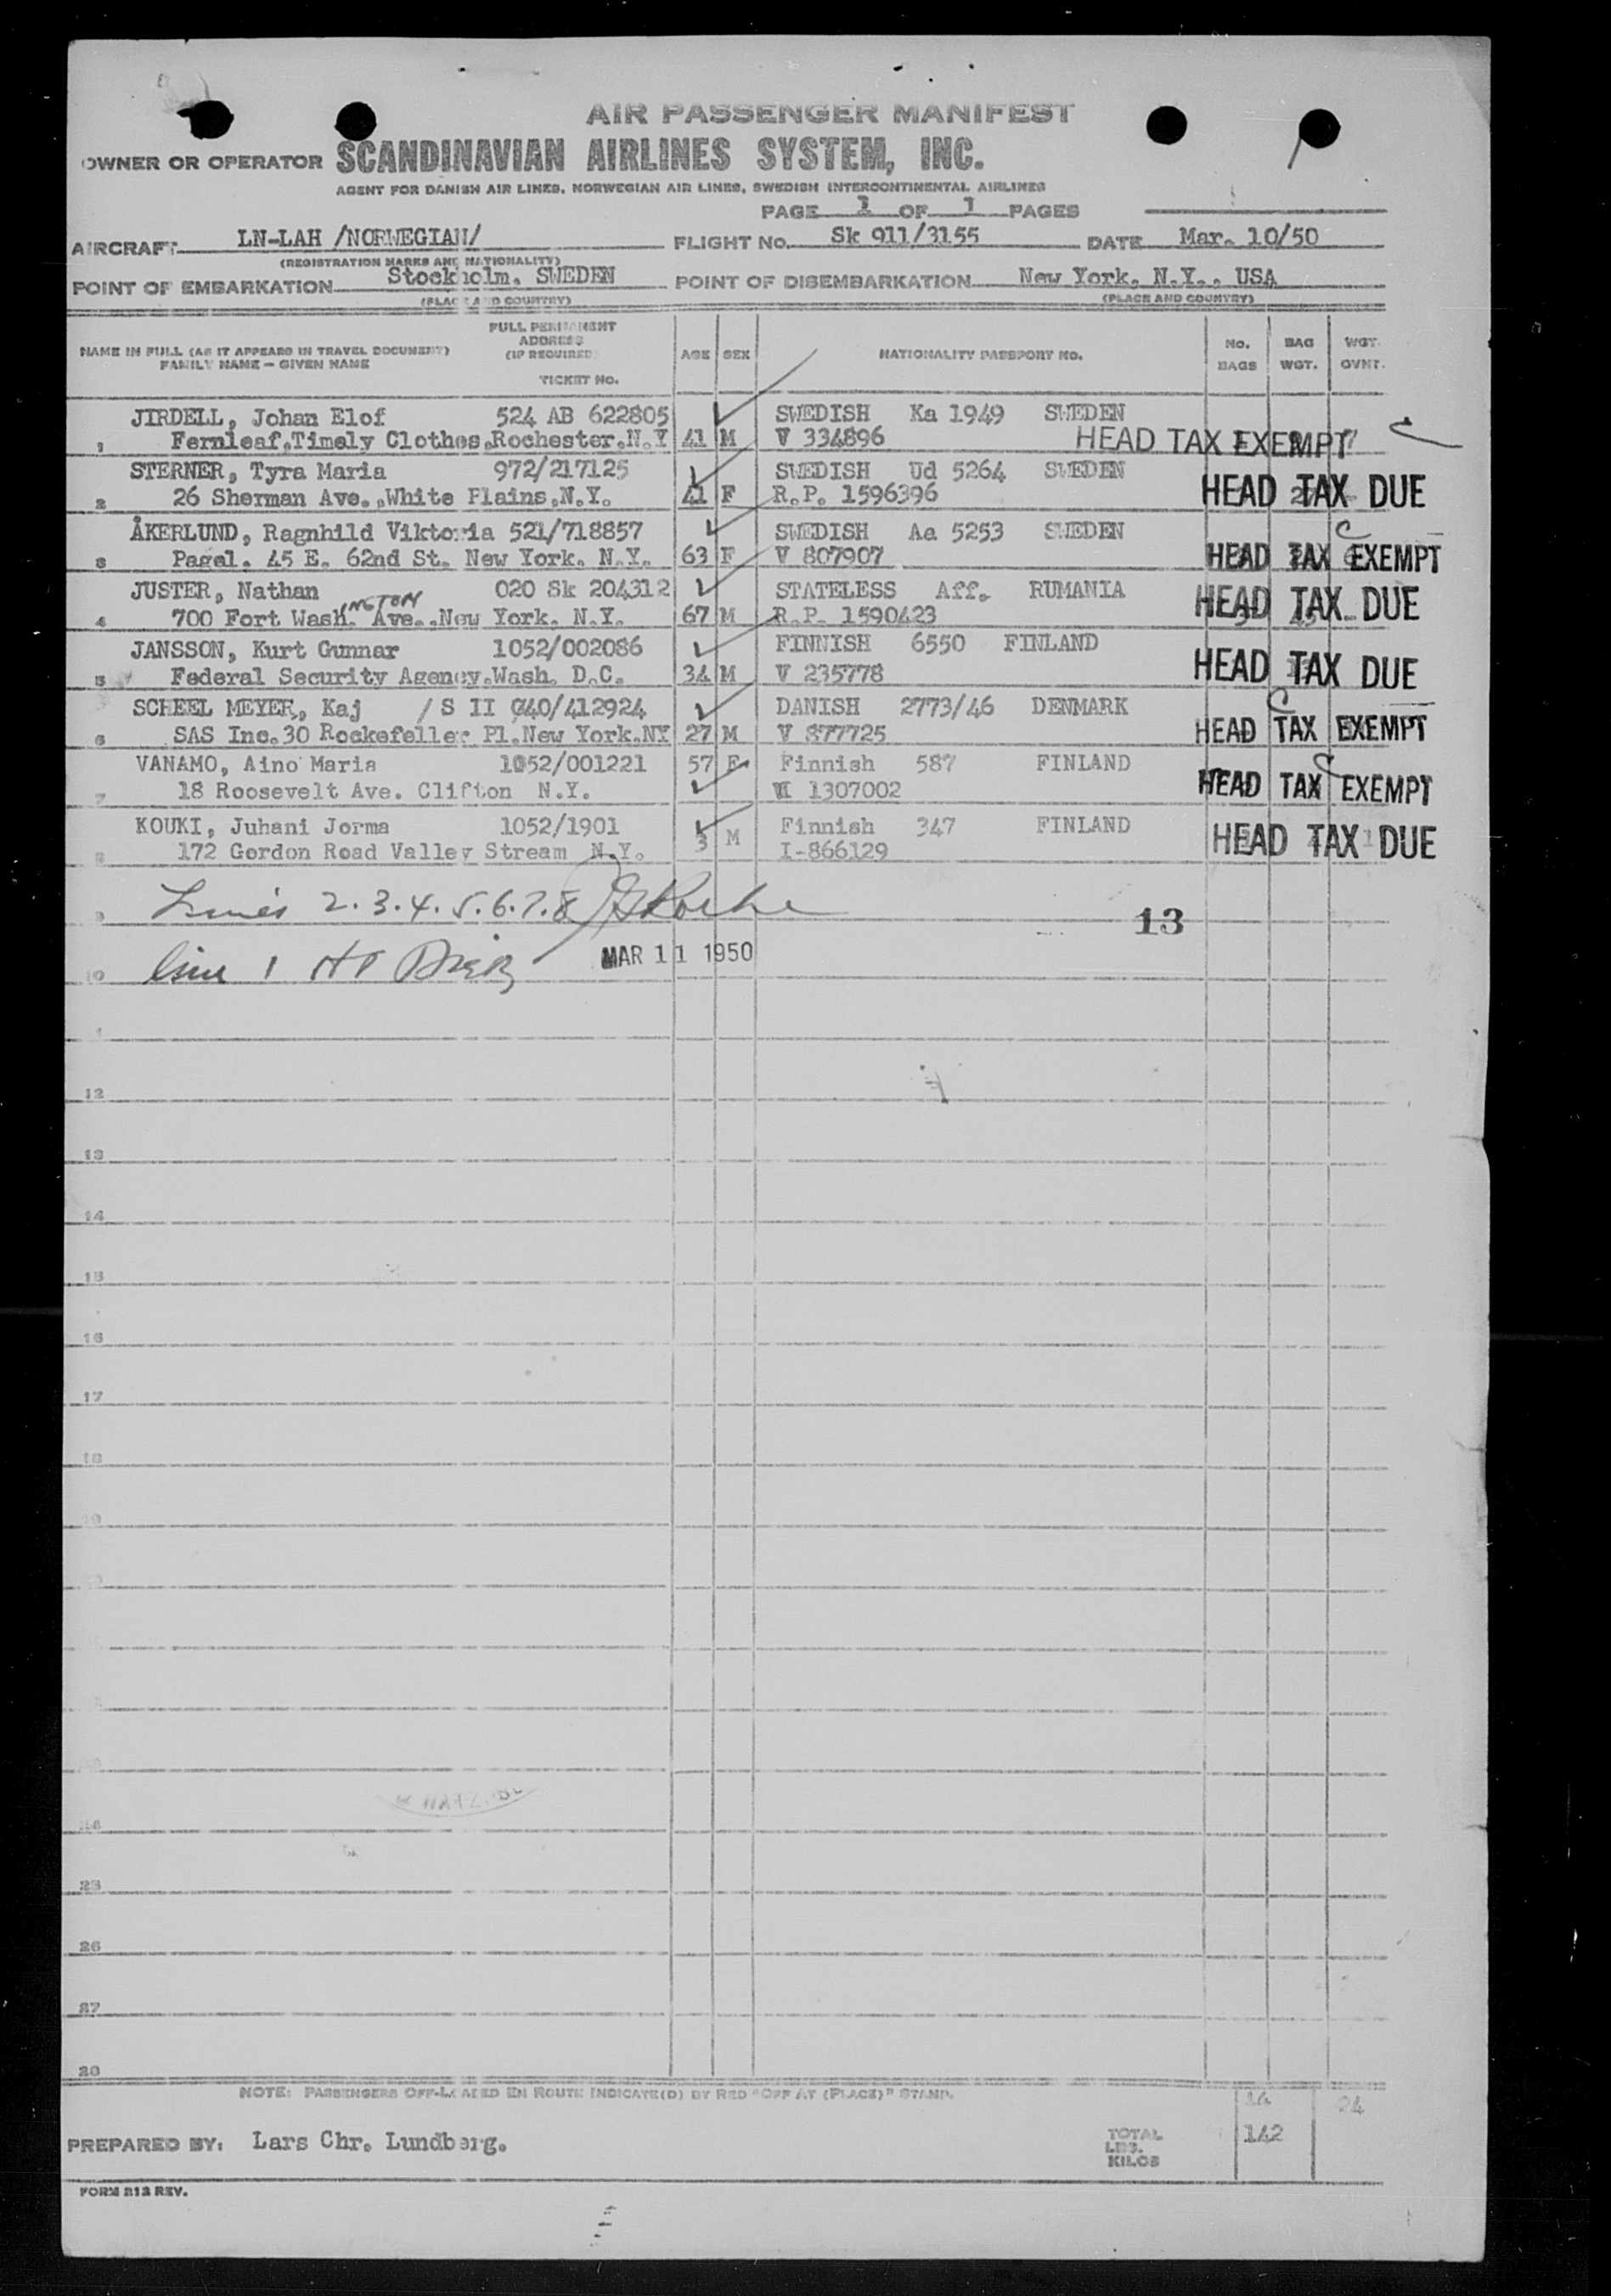 AIR PASSENGER MANIFEST
OWNER OR OPERATOR SCANDINAVIAN AIRLINES SYSTEM, INC.
AGENT FOR DANISH AIR LINES, NORWEGIAN AIR LINES, SWEDISH INTERCONTINENTAL AIRLINES
PAGE 1 OF 1 PAGES
AIRCRAFT LN-LAH /NORWEGIAN/ FLIGHT NO. Sk 911/3155 DATE Mar. 10/50
(REGISTRATION MARKS AND NATIONALITY)
POINT OF EMBARKATION Stockholm, SWEDEN POINT OF DISEMBARKATION New York, N.Y., USA
(PLACE AND COUNTRY) (PLACE AND COUNTRY)
NAME IN FULL (AS IT APPEARS IN TRAVEL DOCUMENT) FAMILY NAME — GIVEN NAME FULL PERMANENT ADDRESS (IF REQUIRED) TICKET NO. AGE SEX NATIONALITY PASSPORT NO. NO. BAGS BAG WGT. WGT. OVNT.
JIRDELL, Johan Elof 524 AB 622805 SWEDISH Ka 1949 SWEDEN
1 Fernleaf.Timely Clothes.Rochester.N.Y 41 M V 334896 HEAD TAX EXEMPT
STERNER, Tyra Maria 972/217125 SWEDISH Ud 5264 SWEDEN
2 26 Sherman Ave.,White Plains.N.Y. 41 F R.P. 1596396 HEAD TAX DUE
ÅKERLUND, Ragnhild Viktoria 521/718857 SWEDISH Aa 5253 SWEDEN
3 Pagel. 45 E. 62nd St. New York. N.Y. 63 F V 807907 HEAD TAX EXEMPT
JUSTER, Nathan 020 Sk 204312 STATELESS Aff. RUMANIA
4 700 Fort Wash. INGTON Ave.,New York. N.Y. 67 M R.P. 1590423 HEAD TAX DUE
JANSSON, Kurt Gunnar 1052/002086 FINNISH 6550 FINLAND
5 Federal Security Agency.Wash. D.C. 34 M V 235778 HEAD TAX DUE
SCHEEL MEYER, Kaj / S II 040/412924 DANISH 2773/46 DENMARK
6 SAS Inc.30 Rockefeller Pl.New York.NY 27 M V 877725 HEAD TAX EXEMPT
VANAMO, Aino Maria 1052/001221 57 F Finnish 587 FINLAND
7 18 Roosevelt Ave. Clifton N.Y. 1307002 HEAD TAX EXEMPT
KOUKI, Juhani Jorma 1052/1901 3 M Finnish 347 FINLAND
8 172 Gordon Road Valley Stream N.Y. I-866129 HEAD TAX DUE
9 Lines 2.3.4.5.6.7.8 13
10 line 1 MAR 11 1950
12
13
14
15
16
17
18
19
25
26
27
28
NOTE: PASSENGERS OFF-LOADED EN ROUTE INDICATE(D) BY RED "OFF AT (PLACE)" STAMP.
14 24
PREPARED BY: Lars Chr. Lundberg. TOTAL LBS. KILOS 142
FORM 212 REV.